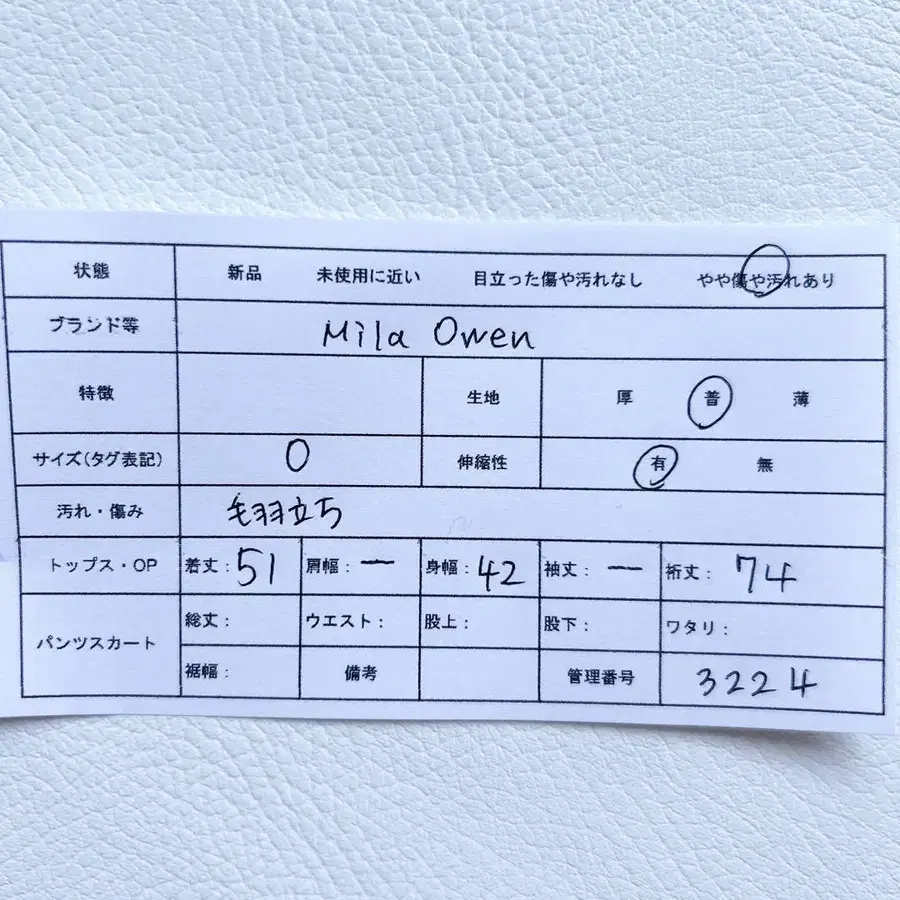 状態 新品 未使用に近い 目立った傷や汚れなし やや傷や汚れあり
ブランド等 Mila Owen
特徴 生地 厚 普 薄
サイズ(タグ表記) 0 伸縮性 有 無
汚れ・傷み 毛羽立ち
トップス・OP 着丈:51 肩幅:ー 身幅:42 袖丈:ー 裄丈:74
パンツスカート 総丈: ウエスト: 股上: 股下: ワタリ:
裾幅: 備考 管理番号 3224